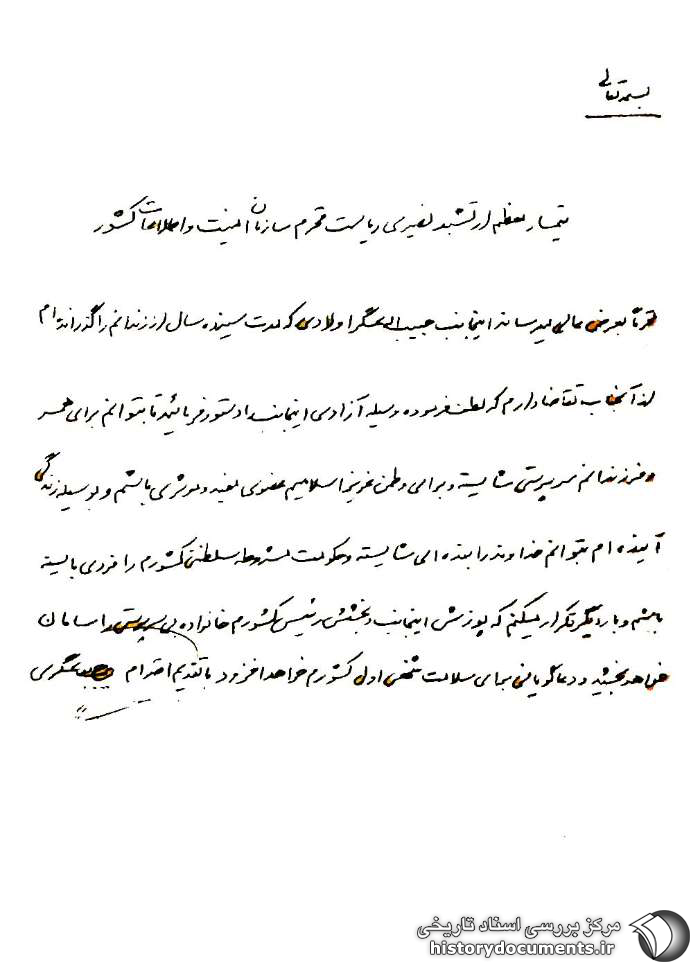 بسمه تعالی
تیمسار معظم ارتشبد نصیری ریاست محترم سازمان امنیت و اطلاعات کشور
محترماً بعرض عالی میرساند اینجانب حبیب اله عسگراولادی که مدت سیزده سال از زندانم را گذرانده ام
از آنجناب تقاضا دارم که لطف فرموده وسیله آزادی اینجانب را دستور فرمائید تا بتوانم برای همسر
و فرزندانم سرپرستی شایسته و برای وطن عزیز اسلامیم عضوی مفید و موثری باشم و بوسیله زندگی
آینده ام بتوانم خداوند را بنده ای شایسته و حکومت مشروطه سلطنتی کشورم را فردی بایسته
باشم و بار دیگر تکرار میکنم که پوزش اینجانب و بخشش رئیس کشورم خانواده بی سرپرستی را سامان
خواهد بخشید و دعاگویانی برای سلامت شخص اول کشورم خواهد افزود با تقدیم احترام عسگری
مرکز بررسی اسناد تاریخی
historydocuments.ir